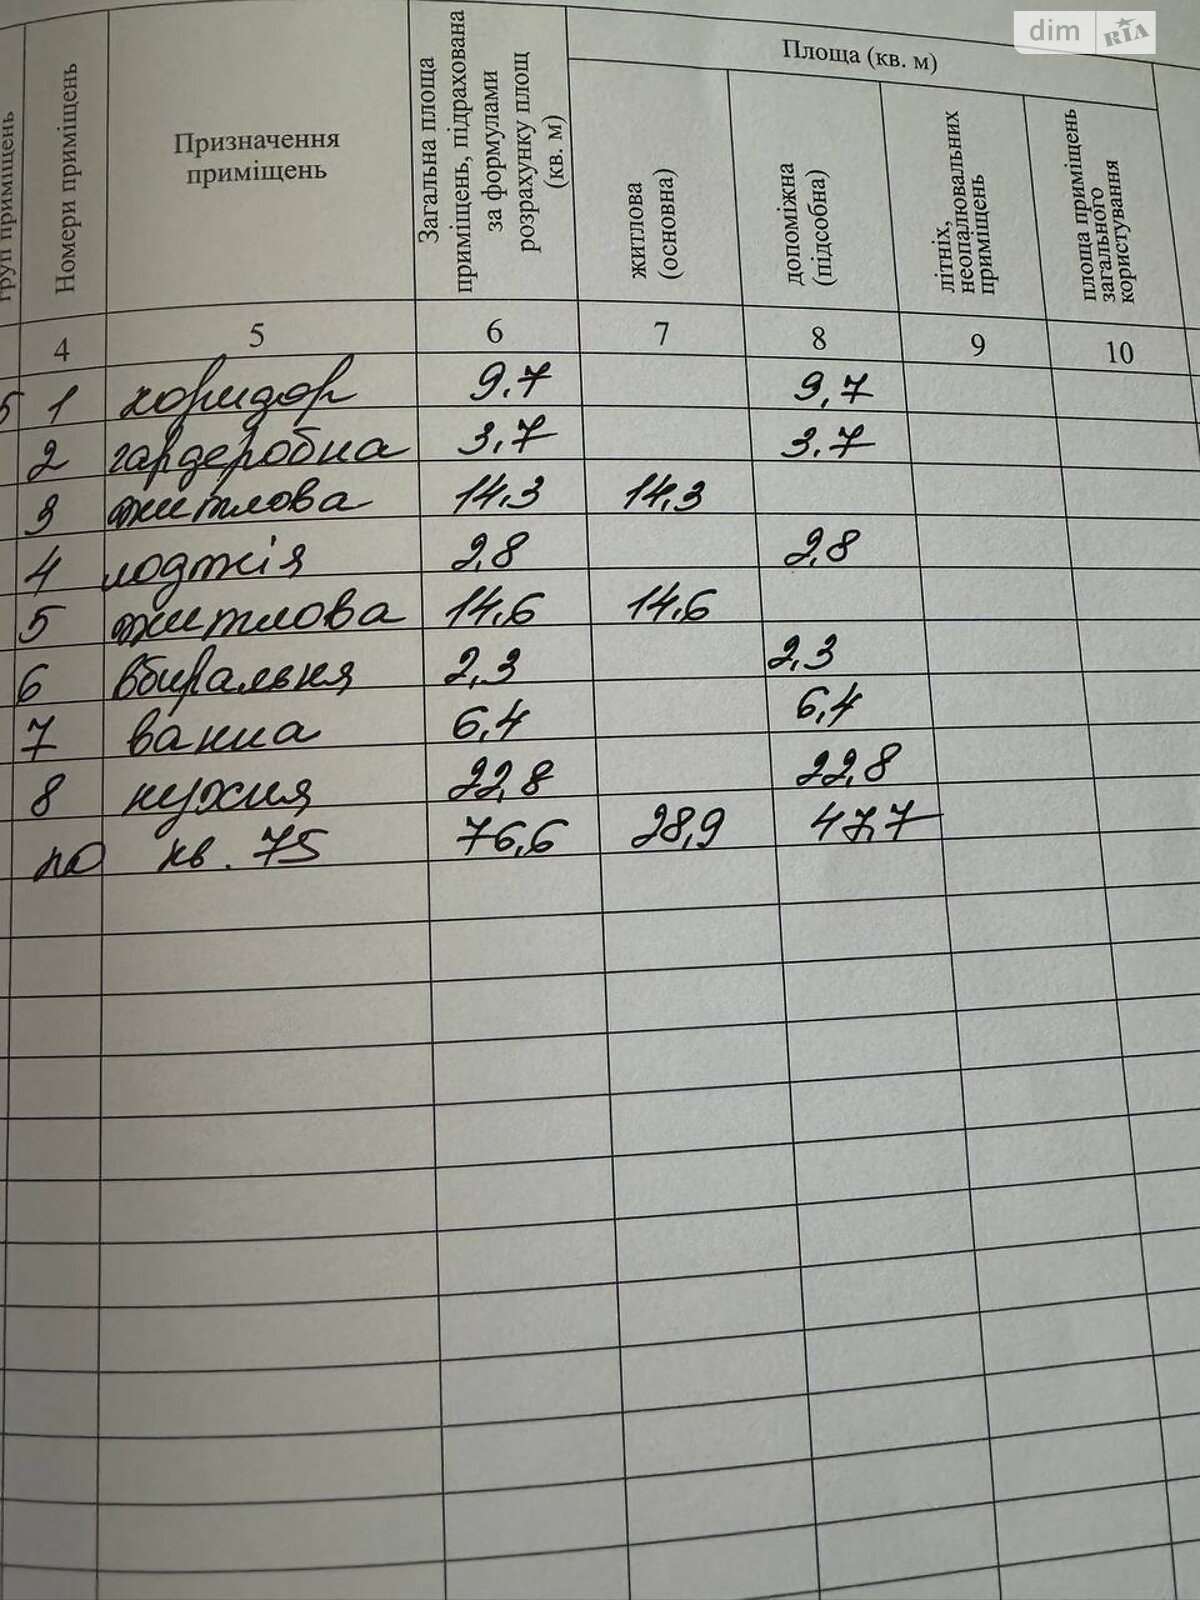 dim RIA
груп приміщень
Номери приміщень
Призначення приміщень
Загальна площа приміщень, підрахована за формулами розрахунку площ (кв. м)
Площа (кв. м)
житлова (основна)
допоміжна (підсобна)
літніх, неопалювальних приміщень
площа приміщень загального користування
4 5 6 7 8 9 10
5 1 коридор 9.7 9,7
2 гардеробна 3,7 3.7
3 житлова 14,3 14,3
4 лоджія 2,8 2,8
5 житлова 14,6 14,6
6 вбиральня 2,3 2,3
7 ванна 6,4 6,4
8 кухня 22,8 22,8
по кв. 75 76,6 28,9 47,7